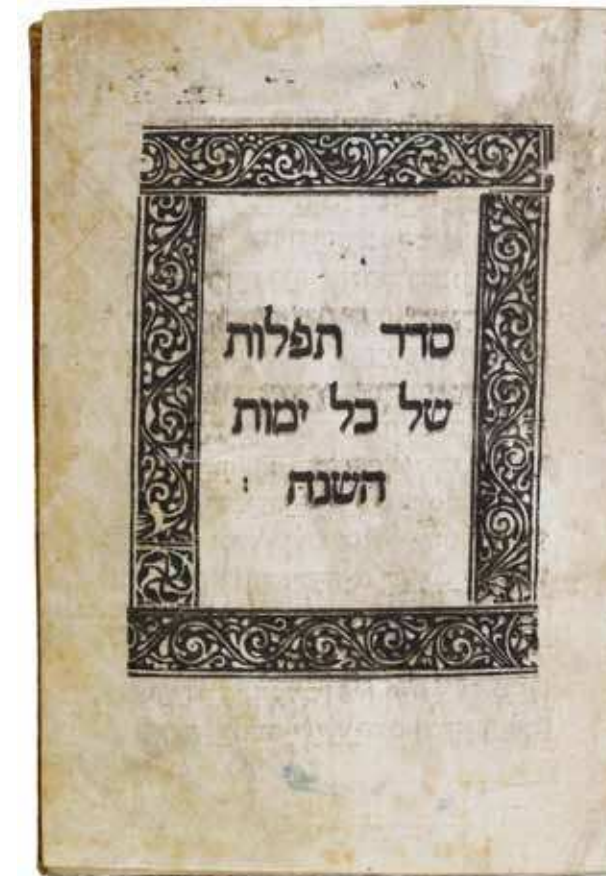 סדר תפלות
של כל ימות
השנה :